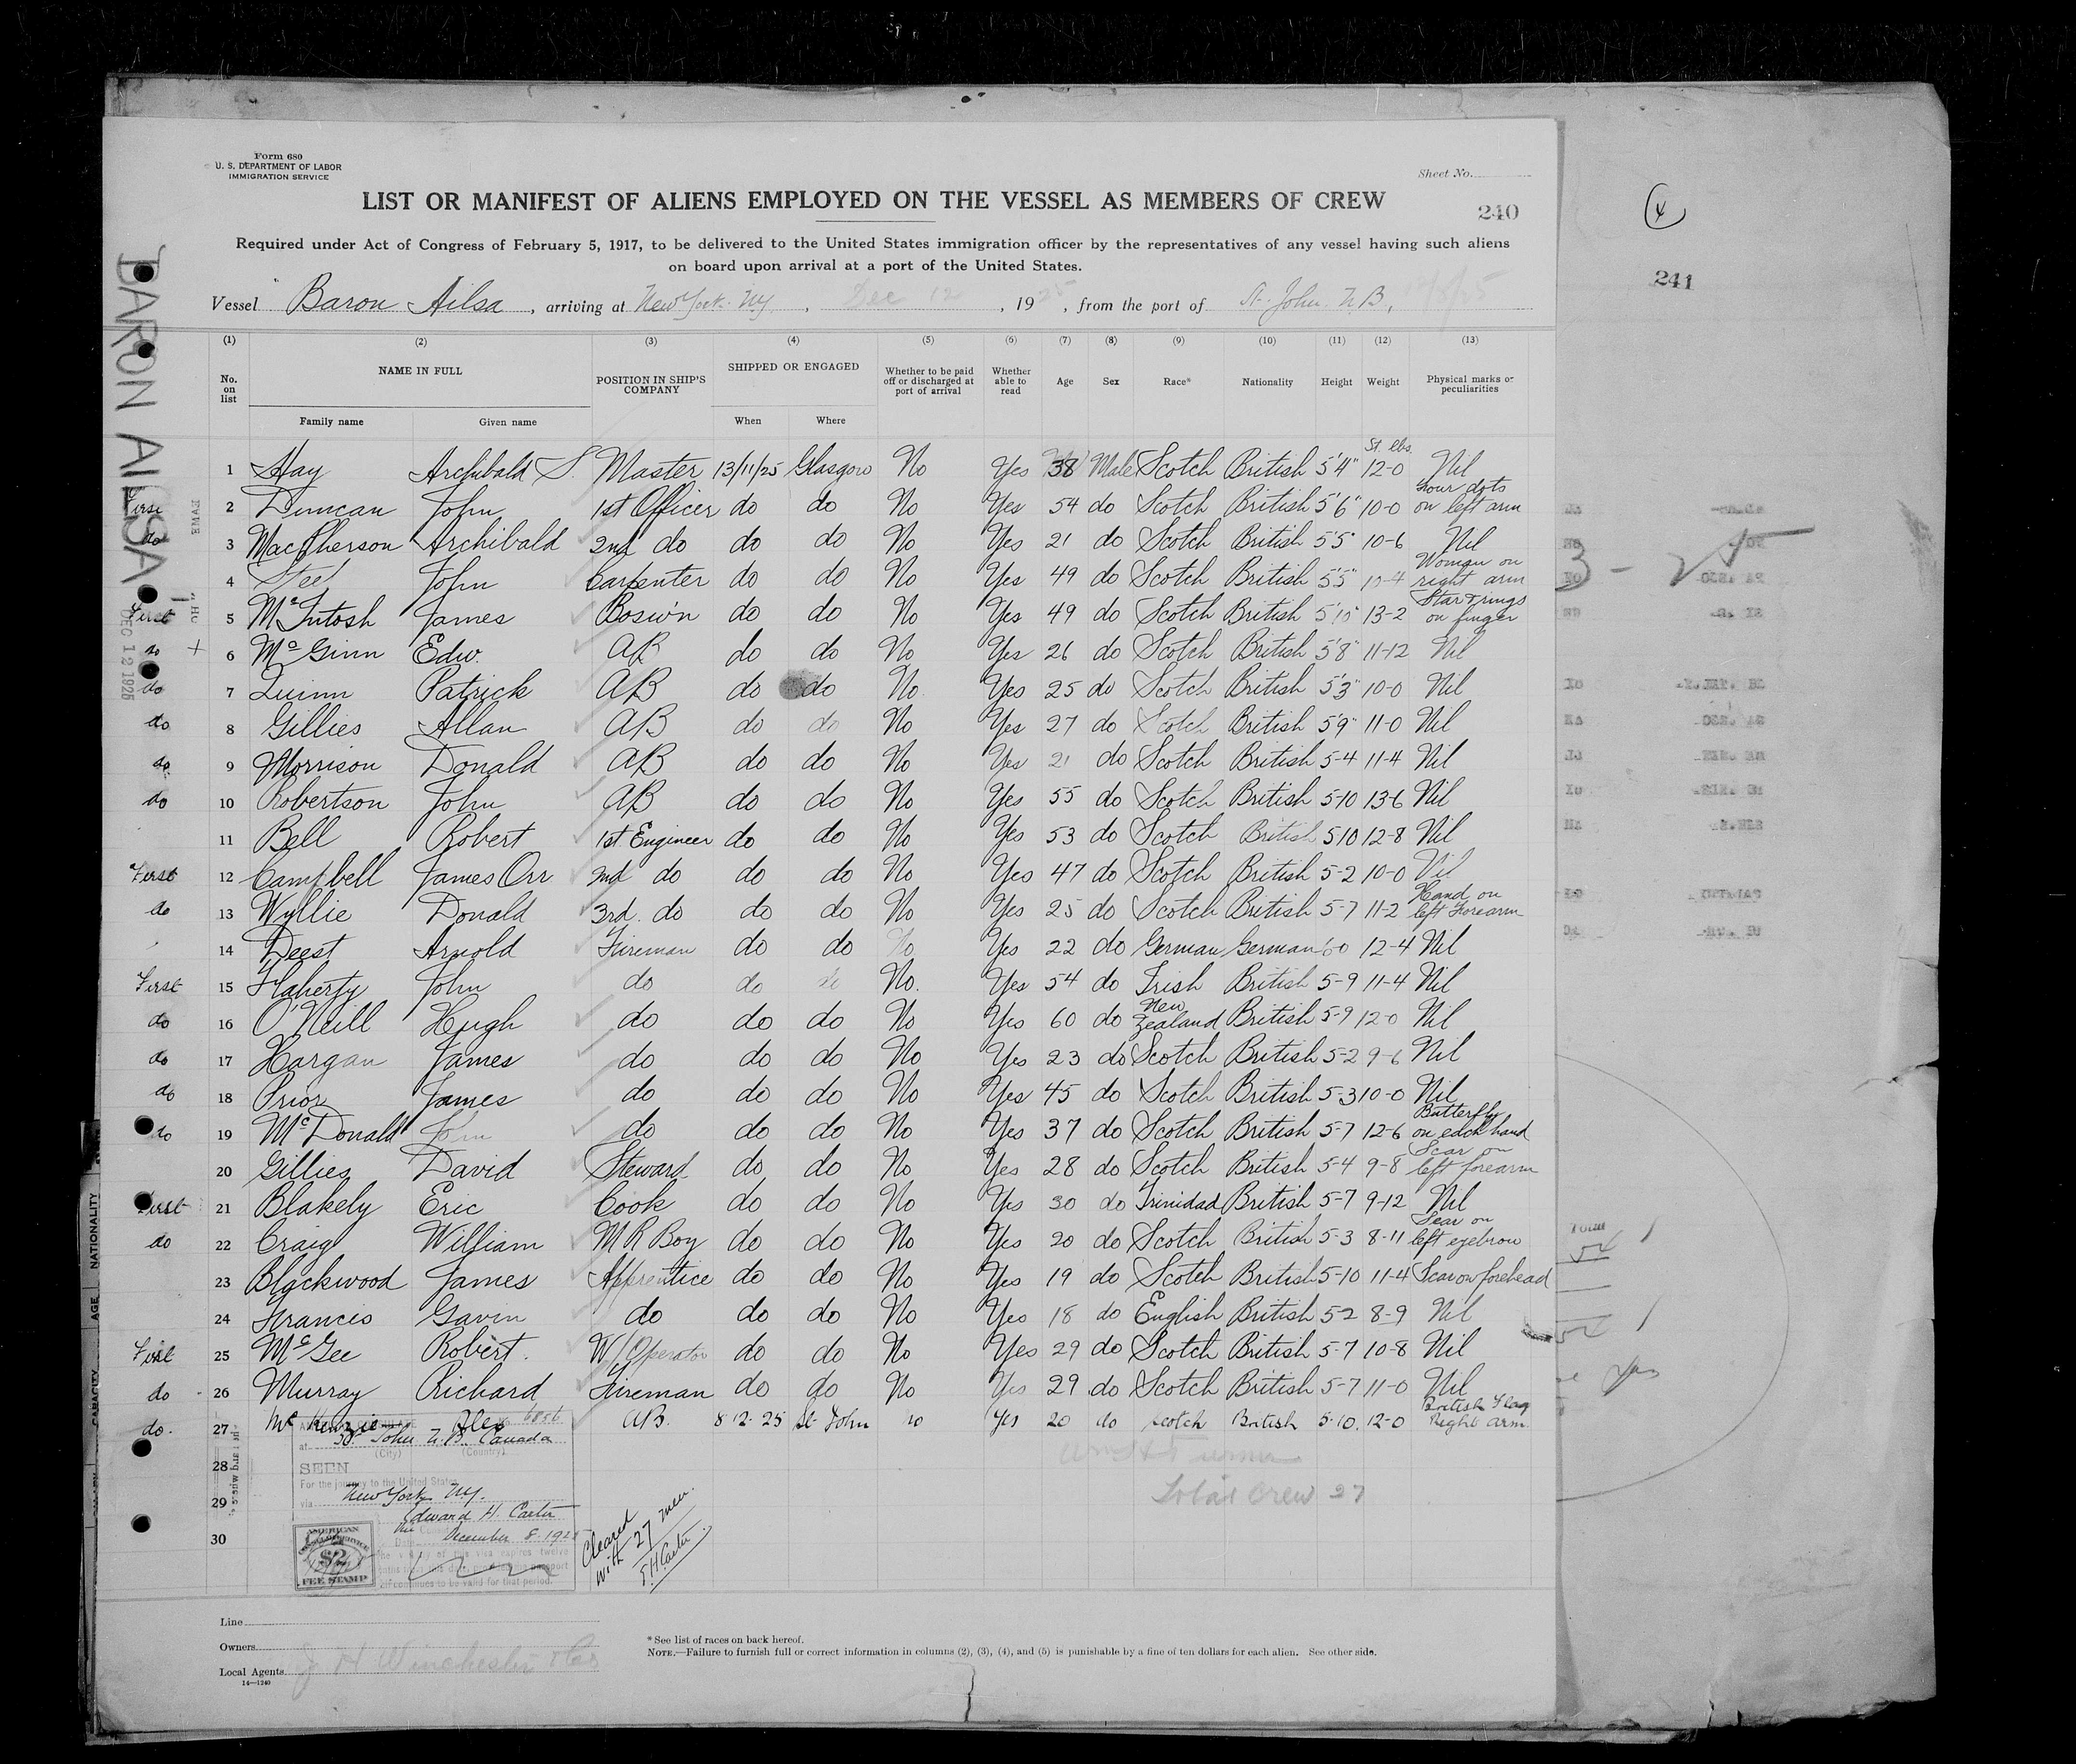 Form 680
U. S. DEPARTMENT OF LABOR
IMMIGRATION SERVICE
Sheet No.
LIST OR MANIFEST OF ALIENS EMPLOYED ON THE VESSEL AS MEMBERS OF CREW
240
241
Required under Act of Congress of February 5, 1917, to be delivered to the United States immigration officer by the representatives of any vessel having such aliens
on board upon arrival at a port of the United States.
Vessel Baron Ailsa, arriving at New York. NY., Dec 12, 1925, from the port of St. John N.B.,
BARON AILSA
DEC 12 1925
(1) (2) (3) (4) (5) (6) (7) (8) (9) (10) (11) (12) (13)
No. on list NAME IN FULL POSITION IN SHIP'S COMPANY SHIPPED OR ENGAGED Whether to be paid off or discharged at port of arrival Whether able to read Age Sex Race* Nationality Height Weight Physical marks or peculiarities
Family name Given name When Where
St. lbs.
1 Hay Archibald S. Master 13/11/25 Glasgow No Yes 38 Male Scotch British 5'4" 12-0 Nil
First 2 Duncan John 1st Officer do do No Yes 54 do Scotch British 5'6" 10-0 Four dots on left arm
do 3 MacPherson Archibald 2nd do do do No Yes 21 do Scotch British 5'5" 10-6 Nil
4 Steel John Carpenter do do No Yes 49 do Scotch British 5'5" 10-4 Woman on right arm
First 5 McIntosh James Bos'n do do No Yes 49 do Scotch British 5'10" 13-2 Star & rings on finger
do + 6 McGinn Edw. AB do do No Yes 26 do Scotch British 5'8" 11-12 Nil
do 7 Quinn Patrick AB do do No Yes 25 do Scotch British 5'3" 10-0 Nil
do 8 Gillies Allan AB do do No Yes 27 do Scotch British 5'9" 11-0 Nil
do 9 Morrison Donald AB do do No Yes 21 do Scotch British 5-4 11-4 Nil
do 10 Robertson John AB do do No Yes 55 do Scotch British 5-10 13-6 Nil
11 Bell Robert 1st Engineer do do No Yes 53 do Scotch British 5-10 12-8 Nil
First 12 Campbell James Orr 2nd do do do No Yes 47 do Scotch British 5-2 10-0 Nil
do 13 Wyllie Donald 3rd. do do do No Yes 25 do Scotch British 5-7 11-2 Hand on left Forearm
14 Deest Arnold Fireman do do No Yes 22 do German German 12-4 Nil
First 15 Flaherty John do do do No. Yes 54 do Irish British 5-9 11-4 Nil
do 16 O'Neill Hugh do do do No Yes 60 do New Zealand British 5-9 12-0 Nil
do 17 Hargan James do do do No Yes 23 do Scotch British 5-2 9-6 Nil
do 18 Prior James do do do No Yes 45 do Scotch British 5-3 10-0 Nil
do 19 McDonald John do do do No Yes 37 do Scotch British 5-7 12-6 Butterfly on each hand
20 Gillies David Steward do do No Yes 28 do Scotch British 5-4 9-8 Scar on left forearm
First 21 Blakely Eric Cook do do No Yes 30 do Trinidad British 5-7 9-12 Nil
do 22 Craig William M R Boy do do No Yes 20 do Scotch British 5-3 8-11 Scar on left eyebrow
23 Blackwood James Apprentice do do No Yes 19 do Scotch British 5-10 11-4 Scar on forehead
24 Francis Gavin do do do No Yes 18 do English British 5-2 8-9 Nil
First 25 McGee Robert. W/Operator do do No Yes 29 do Scotch British 5-7 10-8 Nil
do 26 Murray Richard Fireman do do No Yes 29 do Scotch British 5-7 11-0 Nil
do. 27 McKenzie Alex AB. 8 12. 25 St John no Yes 20 do Scotch British 5-10. 12-0 British Flag Right arm.
at St. John N.B. Canada
(City) (Country)
28 SEEN
For the journey to the United States
29 via New York NY.
Total Crew 27
Edward H. Carter
30 December 8. 1925
AMERICAN CONSULAR SERVICE $2 FEE STAMP
Cleared with 27 men.
E.H. Carter
Line
Owners
Local Agents J H Winchester & Co
14—1240
*See list of races on back hereof.
NOTE.—Failure to furnish full or correct information in columns (2), (3), (4), and (5) is punishable by a fine of ten dollars for each alien. See other side.
NATIONALITY
AGE
CAPACITY
3 - 25
Total
54
54
yes